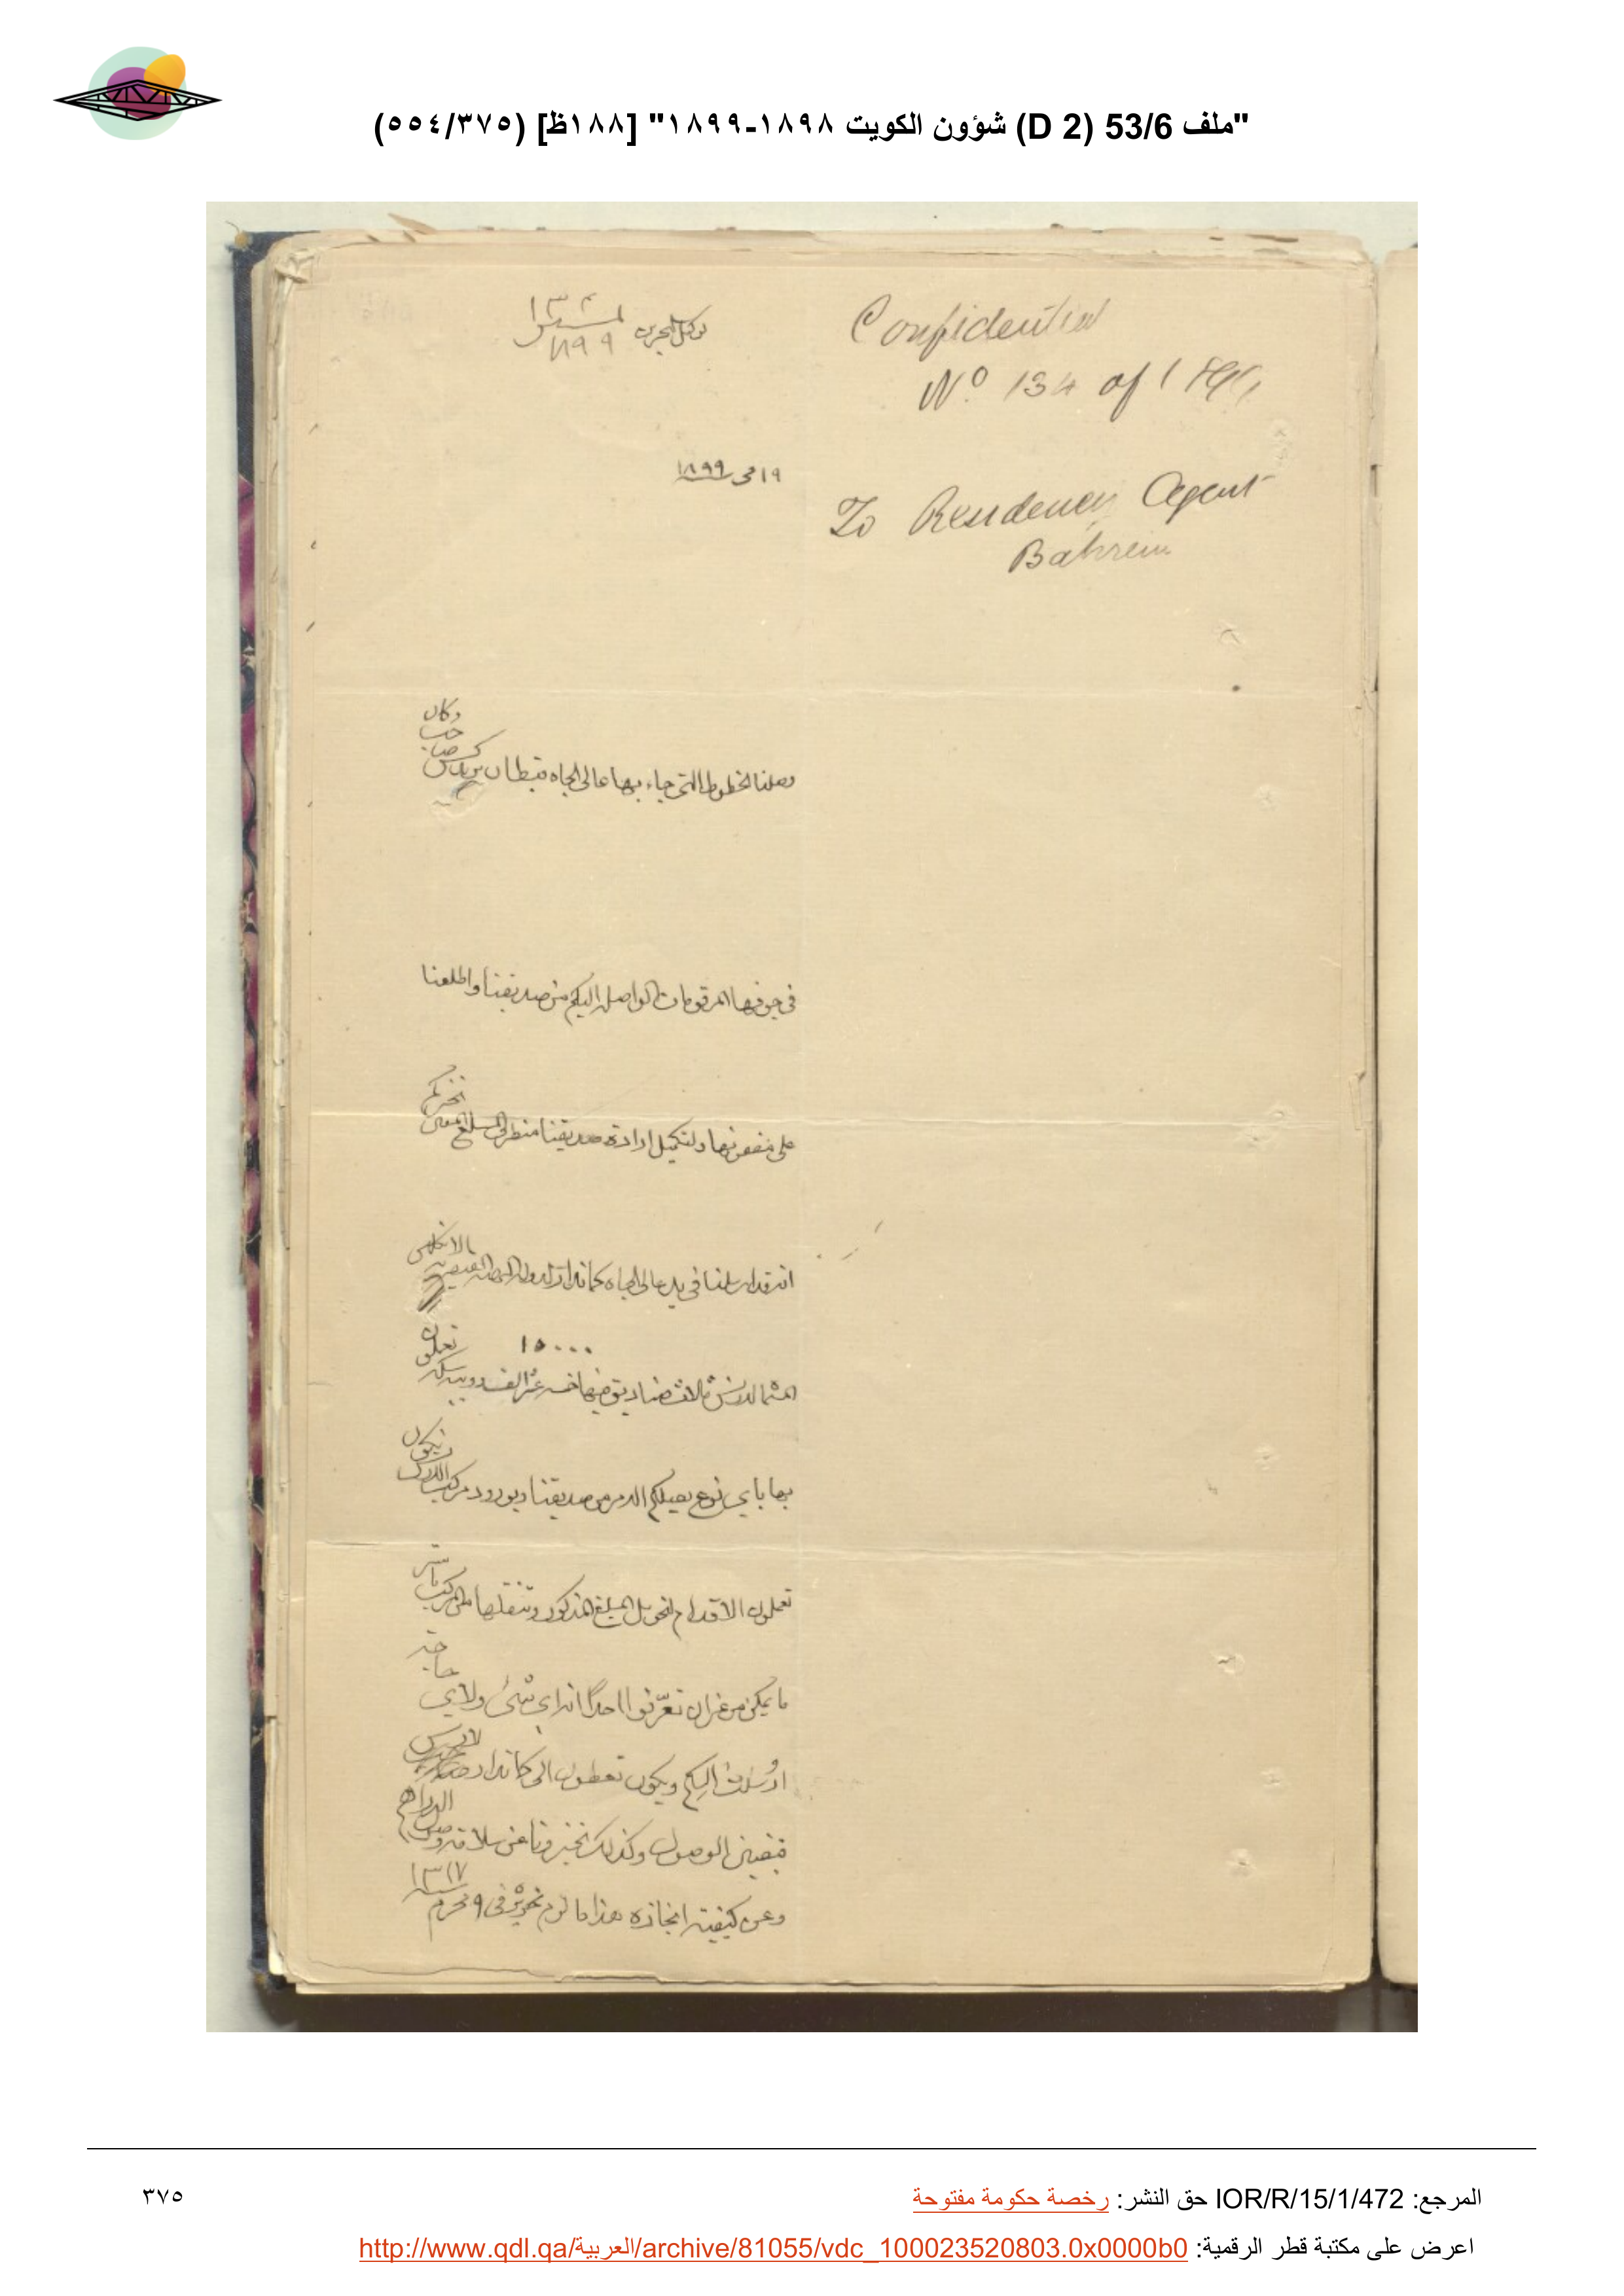 "ملف 53/6 (D 2) شؤون الكويت ١٨٩٨-١٨٩٩" [١٨٨ظ] (٥٥٤/٣٧٥)
Confidential
No 134 of 1899
To Residency Agent
Bahrein
١٣٤
١٨٩٩
١٩ مي ١٨٩٩
وصلنا الخطوط التي جاء بها عالي الجاه قبطان
وكان
في جوفها المرقومات الواصلة اليكم من صديقنا واطلعنا
على مضمونها ولتكميل ارادة صديقنا من طرف المبلغ
نخبركم
انه قد ارسلنا في يد عالي الجاه كماندار
١٥٠٠٠
ثلاث صناديق فيها خمسة عشر الف روبية سكة
بها باي نوع يصلكم الامر من صديقنا وبورود مركب
تعملون الاقدام لتحويل المبلغ المذكور وتنقلها من المركب
ما يمكن من غير ان تعرّفوا احدًا انه اي شيء ولاي
ارسلت اليكم ويكون تعطون الى كماندار
قبض الوصول وكذلك تخبرونا عن سلامة وصول
الدراهم
وعن كيفية انجازه هذا ما لزم تحريره في ٩ محرم
١٣١٧
المرجع: IOR/R/15/1/472 حق النشر: رخصة حكومة مفتوحة
٣٧٥
اعرض على مكتبة قطر الرقمية: http://www.qdl.qa/العربية/archive/81055/vdc_100023520803.0x0000b0